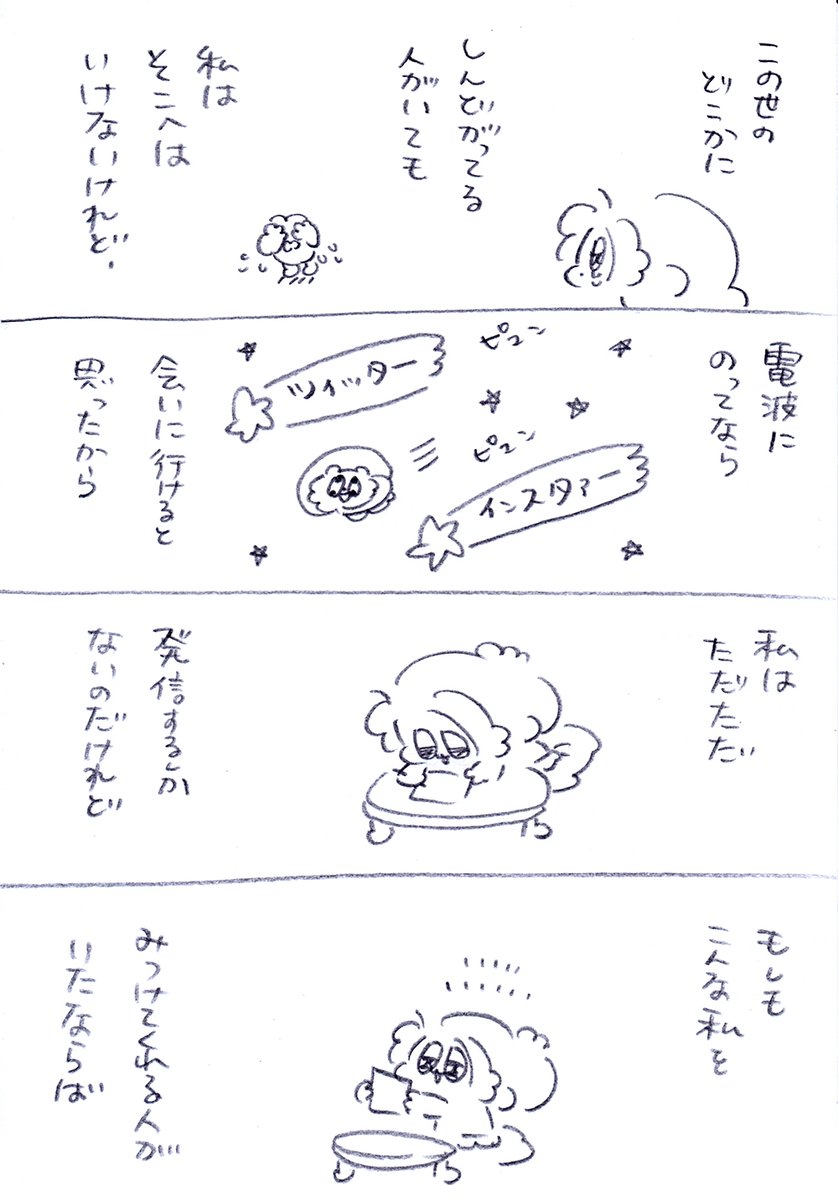 この世の
どこかに
しんどがってる
人がいても
私は
そこへは
いけないけれど・
電波に
のってなら
ピューン
ツイッター
ピューン
インスタァー
会いに行けると
思ったから
私は
ただただ
発信するか
ないのだけれど
もしも
こんな私を
みつけてくれる人が
いたならば